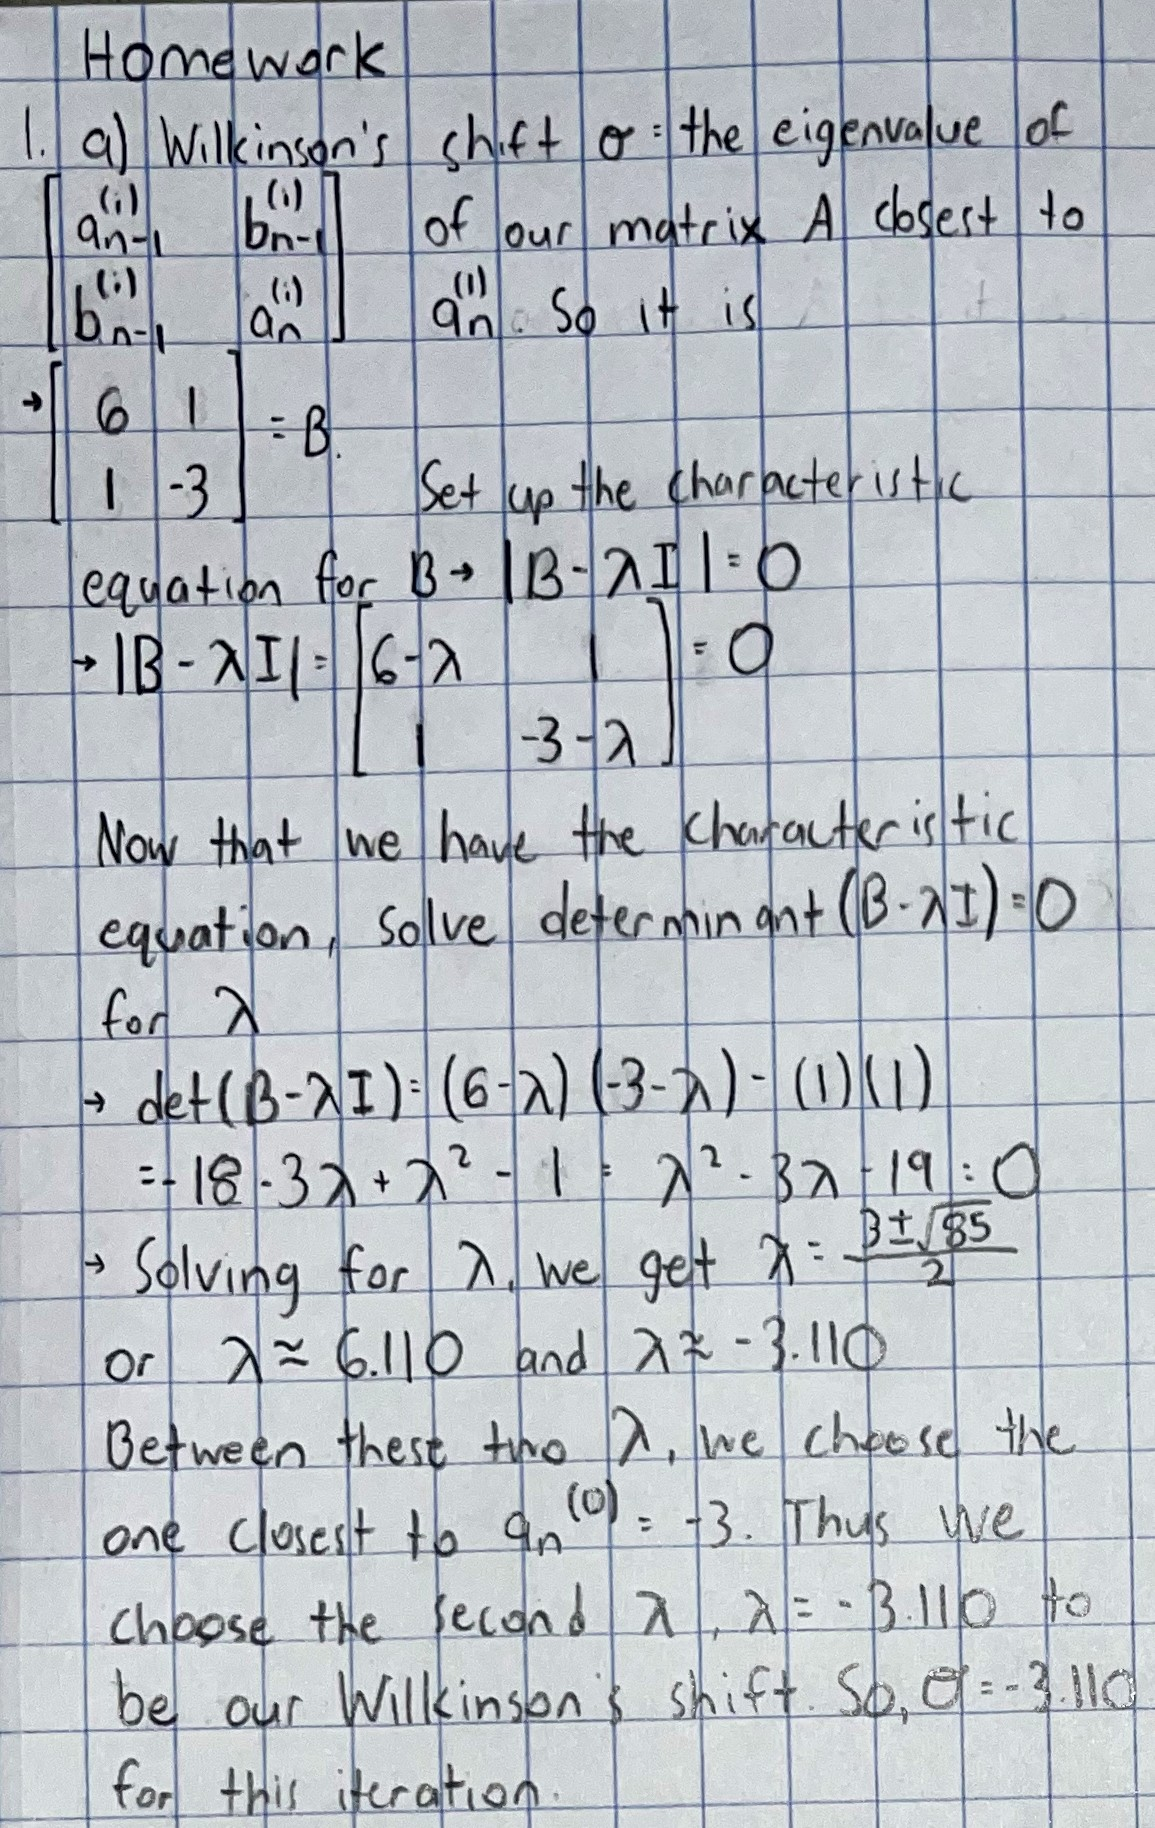 Homework
1. a) Wilkinson's shift σ = the eigenvalue of
[a_{n-1}^{(i)} b_{n-1}^{(i)}; b_{n-1}^{(i)} a_n^{(i)}] of our matrix A closest to
a_n^{(i)}. So it is
→ [6 1; 1 -3] = B.
Set up the characteristic
equation for B → |B - λI| = 0
→ |B - λI| = [6-λ 1; 1 -3-λ] = 0
Now that we have the characteristic
equation, solve determinant (B-λI) = 0
for λ
→ det(B-λI) = (6-λ)(-3-λ) - (1)(1)
= -18 - 3λ + λ² - 1 = λ² - 3λ - 19 = 0
→ Solving for λ, we get λ = (3±√85)/2
or λ ≈ 6.110 and λ ≈ -3.110
Between these two λ, we choose the
one closest to a_n^{(0)} = -3. Thus we
choose the second λ, λ = -3.110 to
be our Wilkinson's shift. So, σ = -3.110
for this iteration.